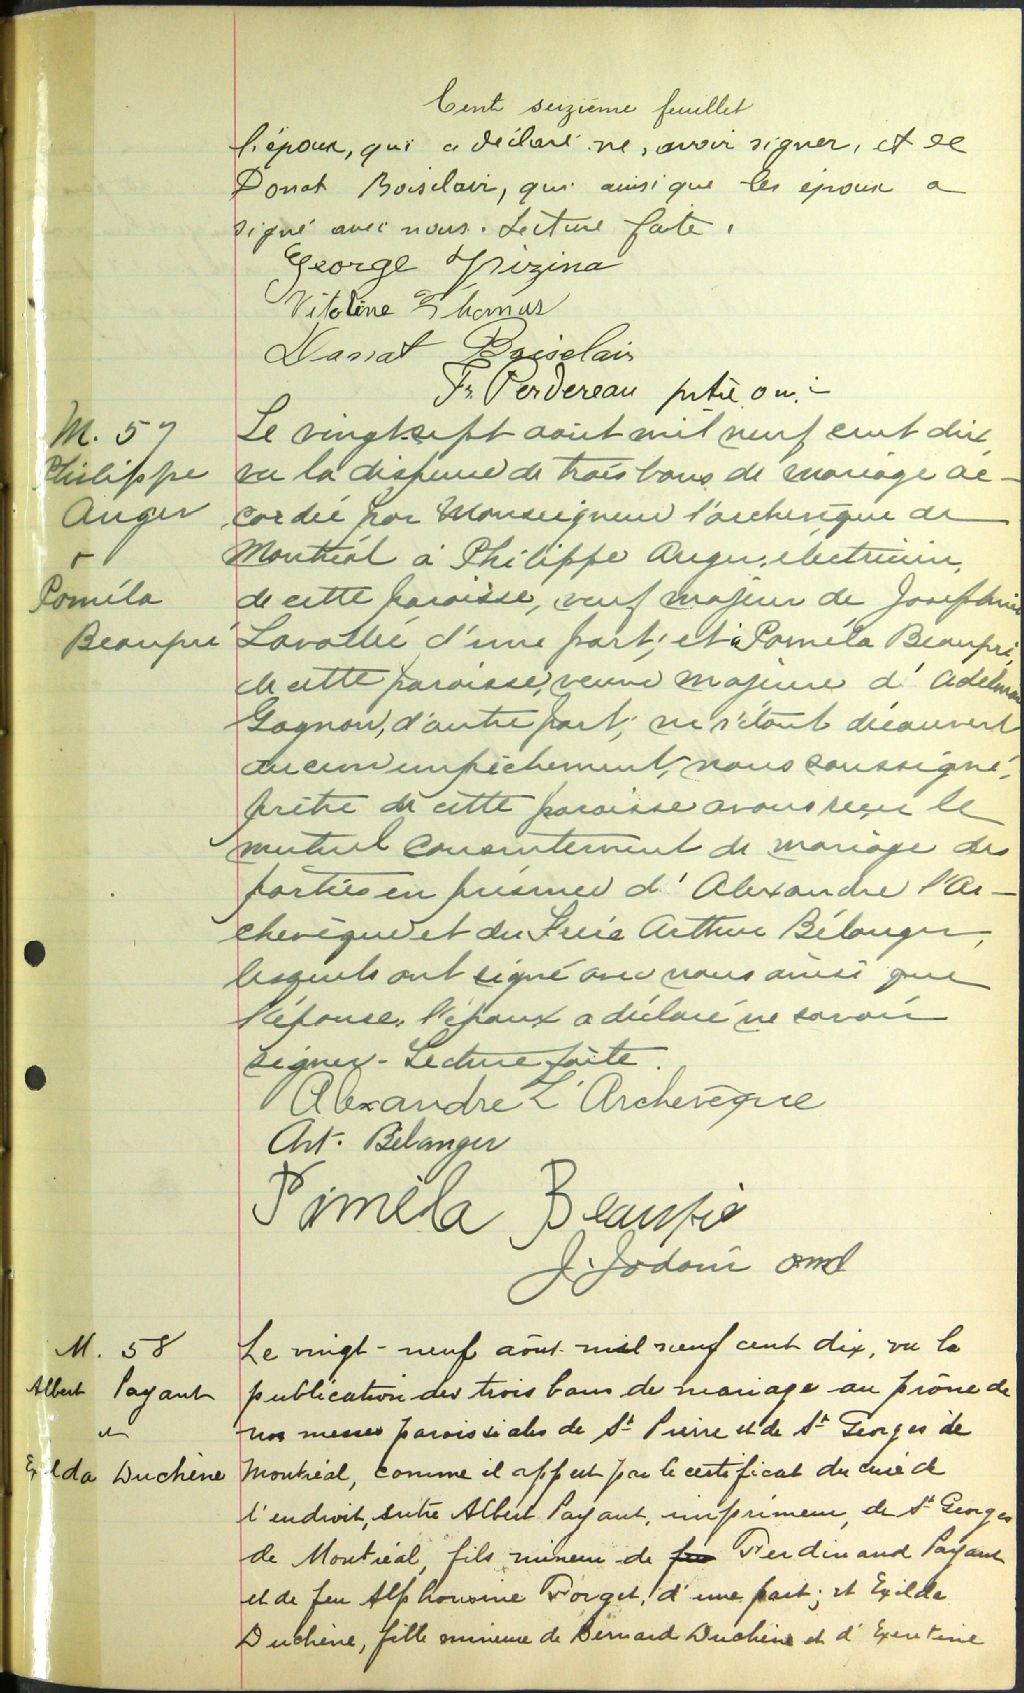 Cent seizième feuillet
l'époux, qui a déclaré ne savoir signer, et de
Donat Boisclair, qui ainsi que les époux a
signé avec nous. Lecture faite.
George
Vitaline Thomas
Donat Boisclair
Fr. Perdereau ptre o.m.i
M. 57
Philippe
Auger
+
Poméla
Beaupré
Le vingt-sept août mil neuf cent dix,
vu la dispense de trois bans de mariage ac-
cordée par Monseigneur l'archevêque de
Montréal à Philippe Auger, électricien,
de cette paroisse, veuf majeur de Josephine
Lavallée d'une part; et à Poméla Beaupré,
de cette paroisse, veuve majeure d'
Gagnon, d'autre part; ne s'étant découvert
aucun empêchement, nous soussigné,
prêtre de cette paroisse avons reçu le
mutuel consentement de mariage des
parties en présence d'Alexandre l'Ar-
chevêque et du Frère Arthur Bélanger,
lesquels ont signé avec nous ainsi que
l'épouse, l'époux a déclaré ne savoir
signer - Lecture faite.
Alexandre L'Archevêque
Art. Bélanger
Piméla Beaupré
J. Jodoin omi
M. 58
Albert Payant
et
Exilda Duchêne
Le vingt-neuf août mil neuf cent dix, vu la
publication des trois bans de mariage au prône de
nos messes paroissiales de St Pierre et de St Georges de
Montréal, comme il appert par le certificat du curé de
l'endroit, entre Albert Payant, imprimeur, de St Georges
de Montréal, fils mineur de feu Ferdinand Payant
et de feu Alphonsine Forget, d'une part; et Exilda
Duchêne, fille mineure de Bernard Duchêne et d'